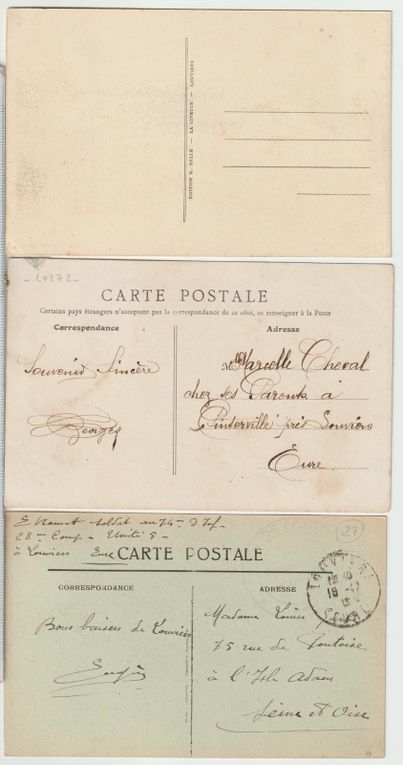 ÉDITION E. BELLE — LA CIVETTE — LOUVIERS
L0272
CARTE POSTALE
Certains pays étrangers n'acceptant pas la correspondance de ce côté, se renseigner à la Poste
Correspondance
Adresse
Souvenir Sincère
Georges
Mlle Marcelle Cheval
chez ses Parents à
Pinterville près Louviers
Eure
27
E Hamet soldat au 74me d'Inf
28me Comp - Unité 5 -
à Louviers Eure
CARTE POSTALE
LOUVIERS
CORRESPONDANCE
ADRESSE
Bons baisers de Louviers
Madame Louis
75 rue de Pontoise
à l'Isle Adam
Seine et Oise